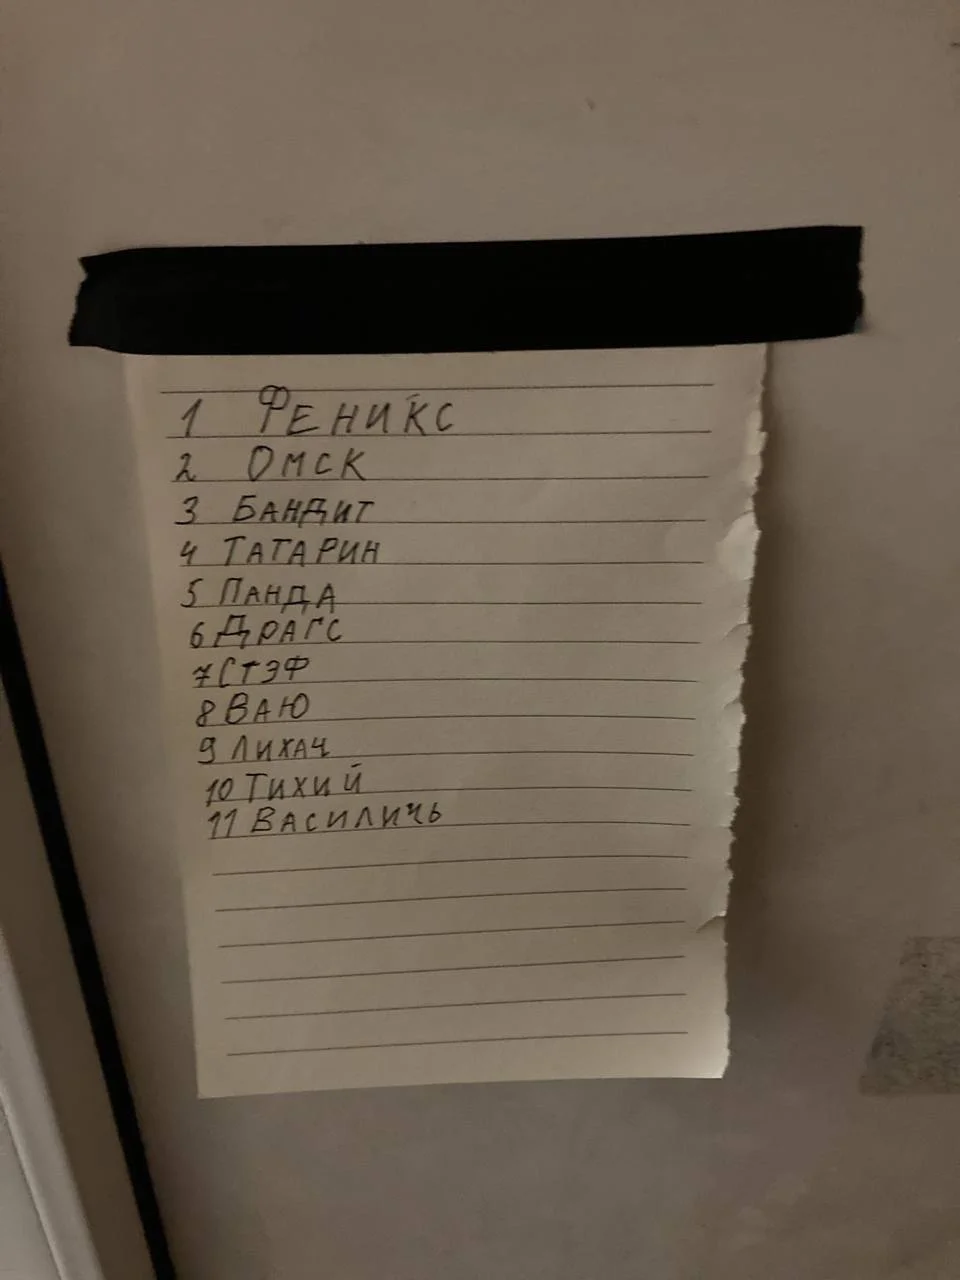 1 ФЕНИКС
2 ОМСК
3 БАНДИТ
4 ТАТАРИН
5 ПАНДА
6 ДРАГС
7 СТЭФ
8 ВАЮ
9 ЛИХАЧ
10 ТИХИЙ
11 ВАСИЛИЧЬ